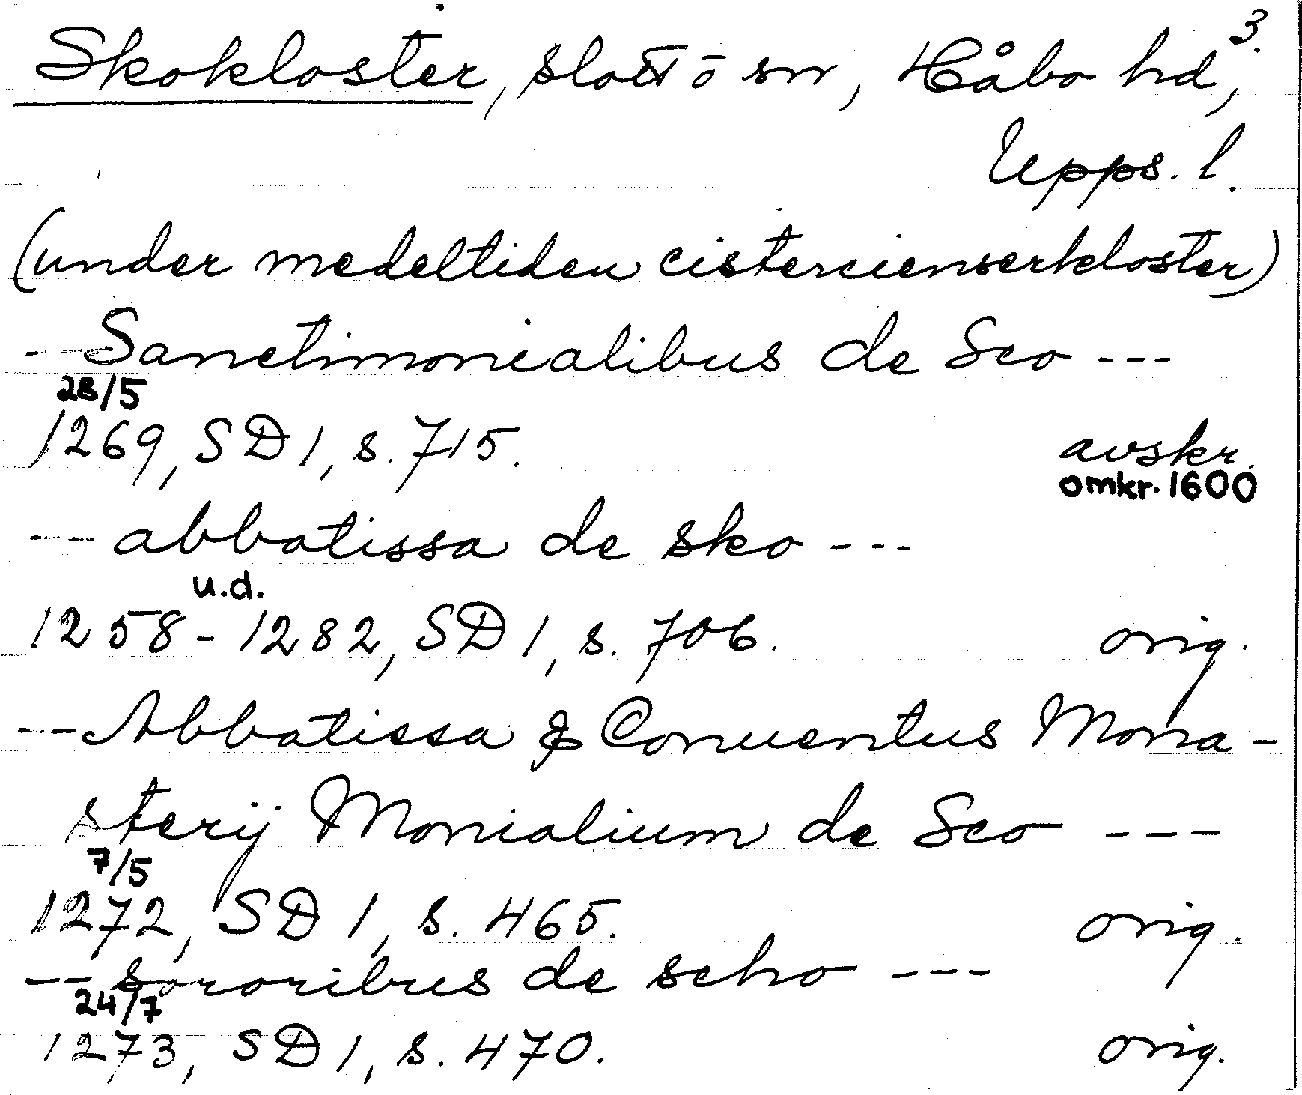 Skokloster, slott ō sn, Håbo hd, 3.
Upps. l.
(under medeltiden cistercienserkloster)
--- Sanctimonialibus de Sco ---
28/5
1269, SD 1, s. 715. avskr.
omkr. 1600
--- abbatissa de sko ---
u.d.
1258-1282, SD 1, s. 706. orig.
--- Abbatissa & Conuentus Mona-
sterij Monialium de Sco ---
7/5
1272, SD 1, s. 465. orig.
--- sororibus de scho ---
24/7
1273, SD 1, s. 470. orig.